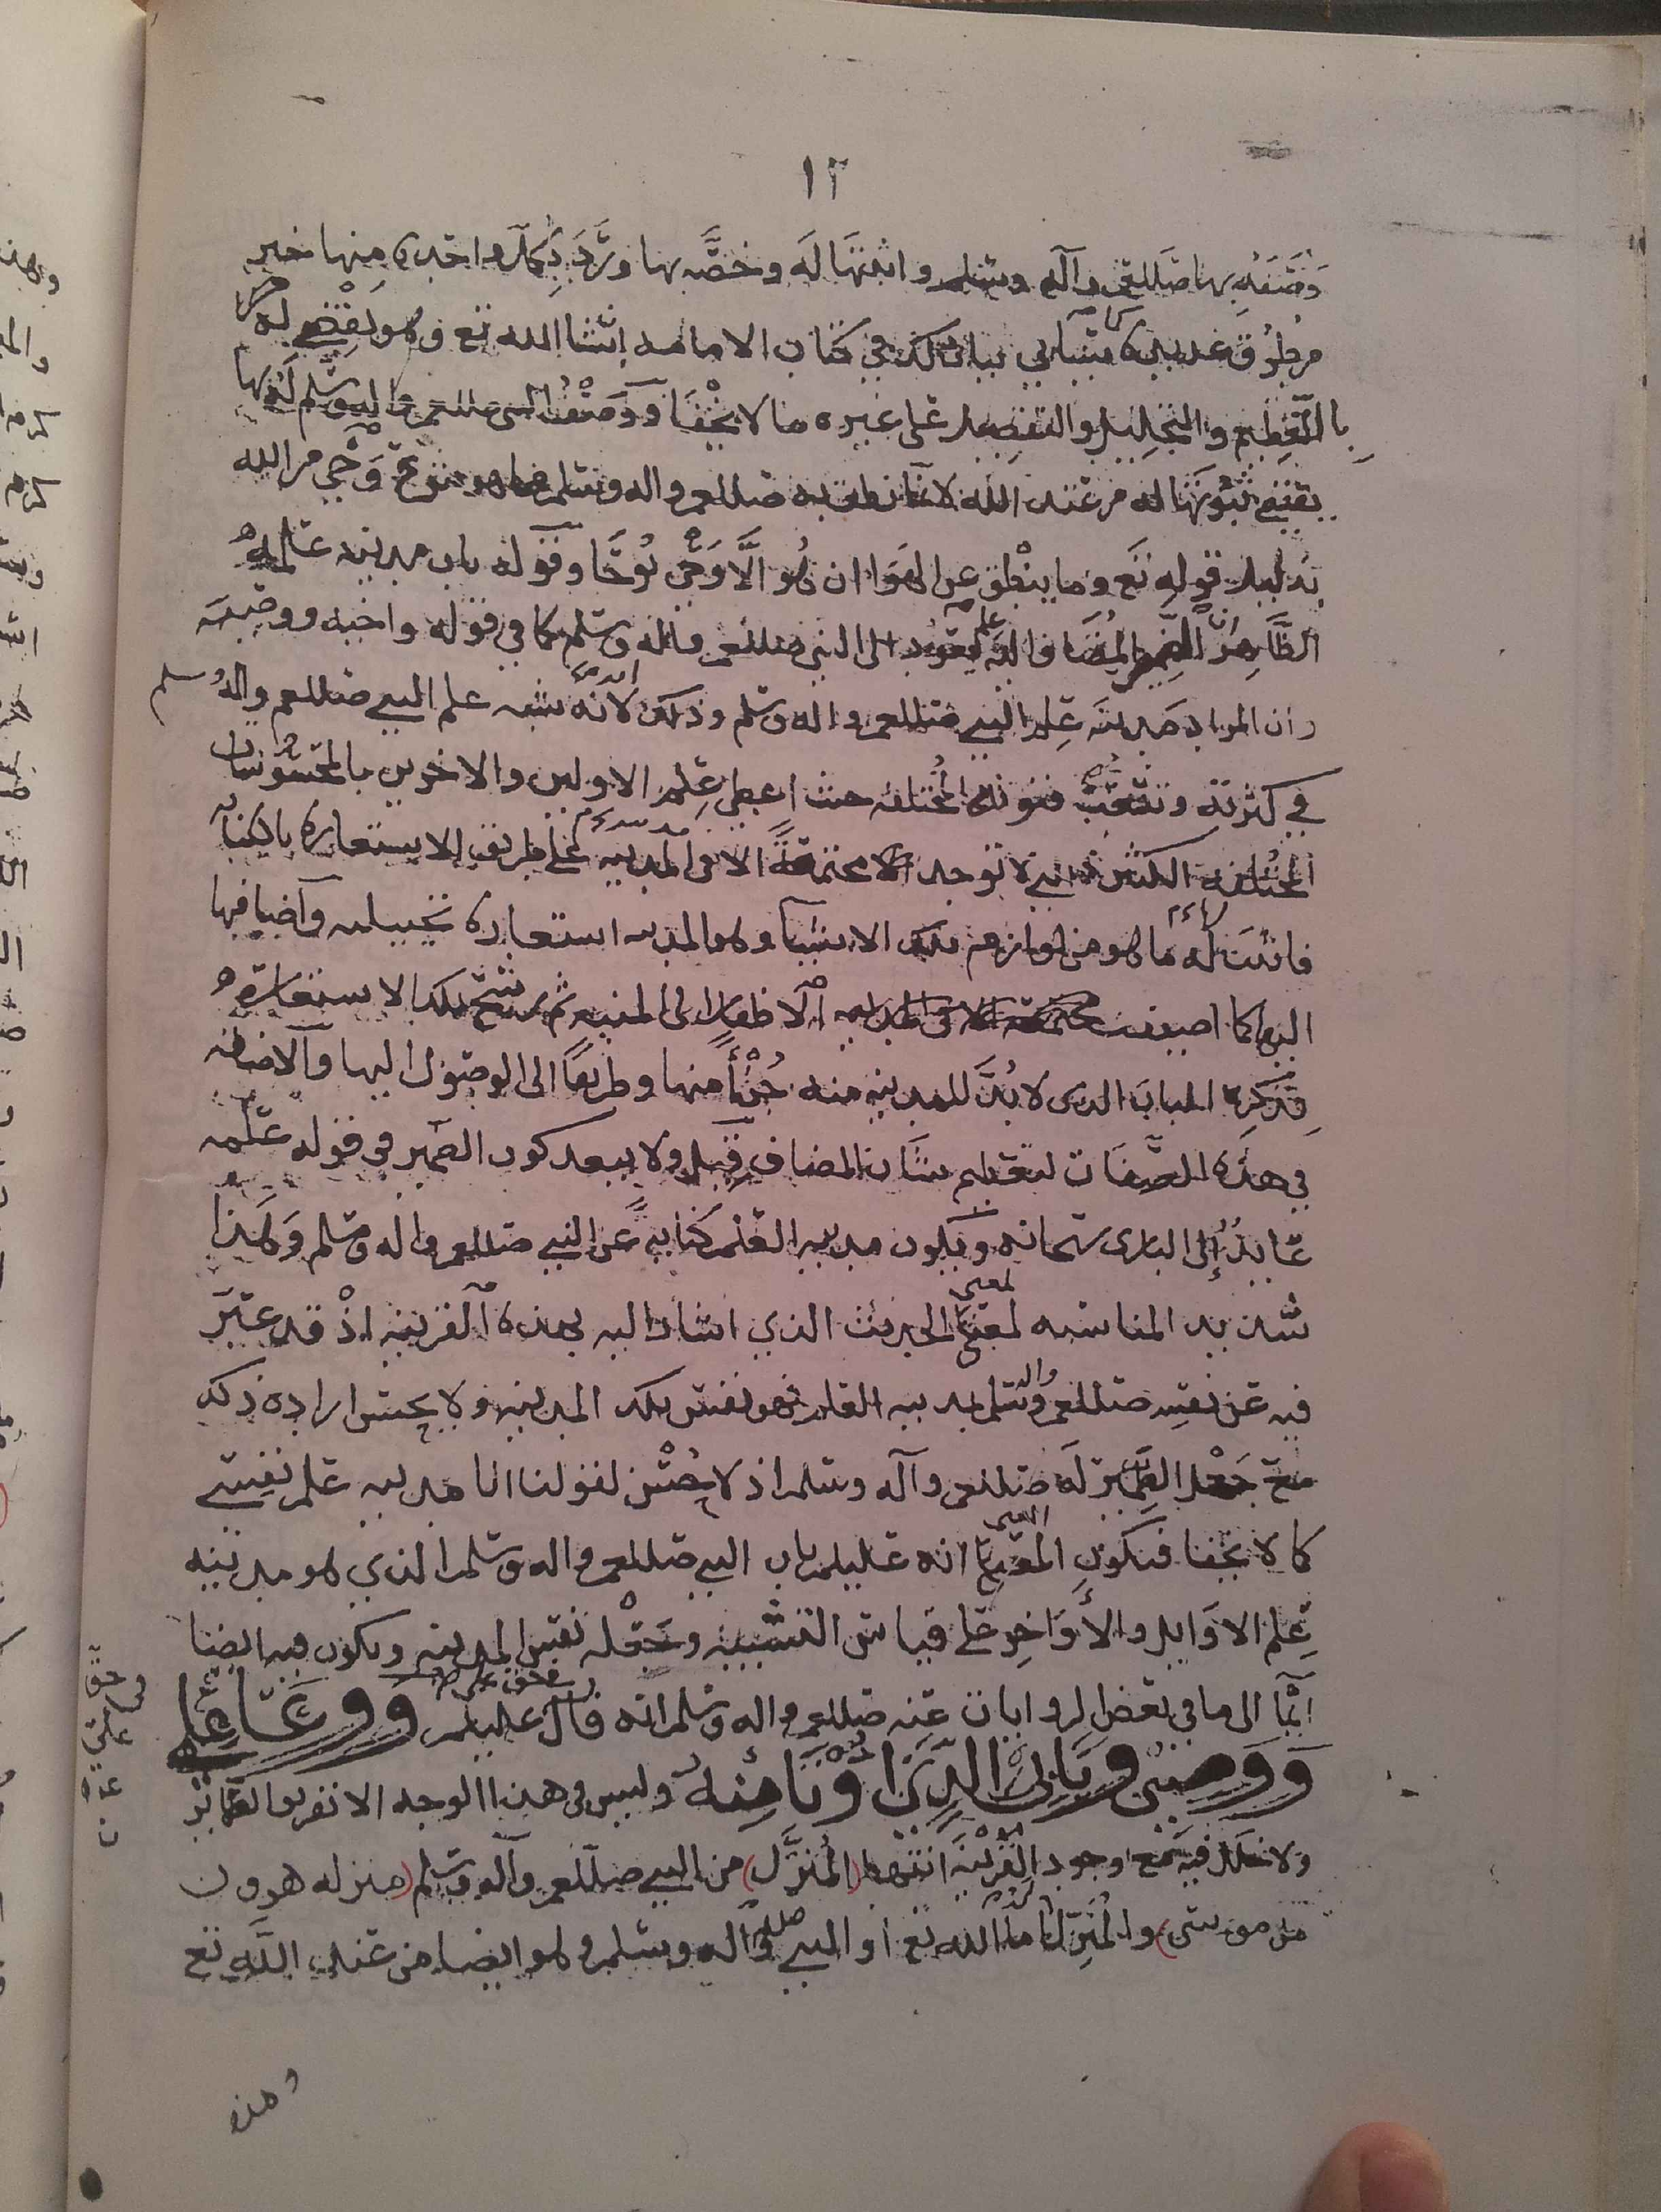 ١٢
وصفه بها صللعم وآله وسلم واثبتها له وخصه بها وترد بكل واحدة منها خبر
من طرق عديدة كما سياتي بيان ذلك في كتاب الامامه انشا الله تع وهو يقضي له
بالتعظيم والتبجيل والتفضيل على غيره ما لا يخفا ووصف النبي صللعم واله وسلم له بها
يقتضي ثبوتها له من عند الله لان ما نطق به صللعم واله وسلم فهو وحي من الله
بدليل قوله تع وما ينطق عن الهوا ان هو الا وحي يوحا وقوله باب مدينه علمه
الظاهر ان الضمير المضاف اليه علم يعود الى النبي صللعم واله وسلم كما في قوله واخيه ووصيه
وان المراد مدينه علم النبي صللعم واله وسلم وذلك لانه شبه علم النبي صللعم واله وسلم
في كثرته وتشعب فنونه المختلفه حيث اعطي علم الاولين والاخرين بالمحسوسات
المختلفه الكثيره التي لا توجد مجتمعة الا في المدينه على طريق الاستعارة بالكناية
فاثبت له ما هو من لوازم تلك الاشيا وهو المدينه استعارة تخييليه واضافها
اليه كما اضيفت الاظفار الى المنيه ثم رشح تلك الاستعارة
بذكر الباب الذي لا بد للمدينه منه جزأ منها وطريقا الى الوصول اليها والاضافه
في هذه الصفات لتعظيم شان المضاف قيل ولا يبعد كون الضمير في قوله علمه
عايد إلى الباري سبحانه ويكون مدينه العلم كناية عن النبي صللعم واله وسلم وهذا
شديد المناسبه لمعنى الحديث الذي اشار اليه بهذه القرينه اذ قد عبر
فيه عن نفسه صللعم واله وسلم بمدينه العلم فهو نفس تلك المدينه ولا يحسن اراده ذلك
مع جعل الضمير له صللعم وآله وسلم اذ لا يحسن لقولنا انا مدينه علم نفسي
كما لا يخفا فيكون المعنى انه عليلم باب النبي صللعم واله وسلم الذي هو مدينه
علم الاوايل والأواخر على قياس التشبيه وجعله نفس المدينه ويكون فيه ايضا
ايما الى ما في بعض الروايات عنه صللعم واله وسلم انه قال في حق علي عليلم ووعا علمي
ووصيي وبابي الذي اوتا منه وليس في هذا الوجه الا تفريق الضماير
ولا خلل فيه مع وجود القرينه انتها (المنزل) من النبي صللعم وآله وسلم (منزله هرون
من موسى) والمنزل له اما الله تع او النبي صللعم واله وسلم وهو ايضا من عند الله تع
وهذه